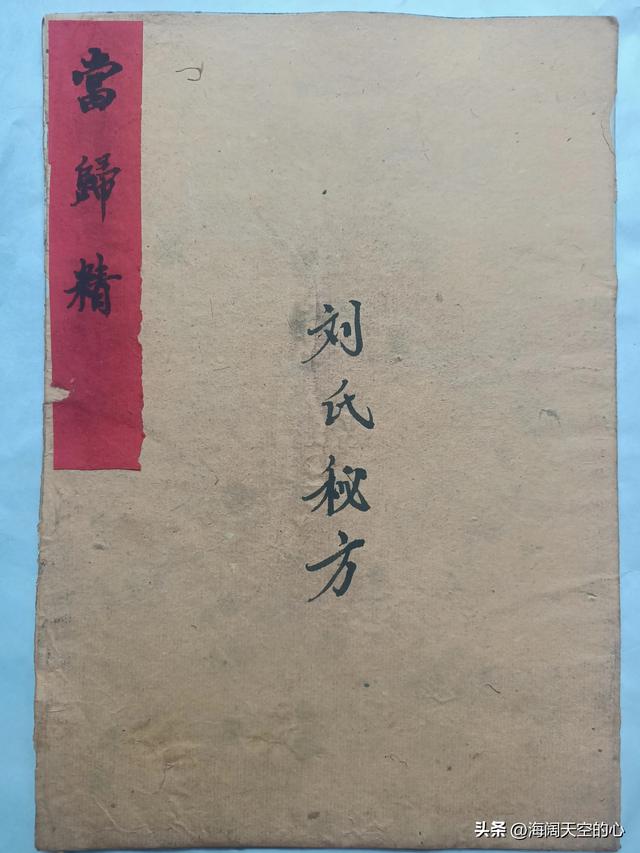 當歸精
刘氏秘方
头条 @海阔天空的心